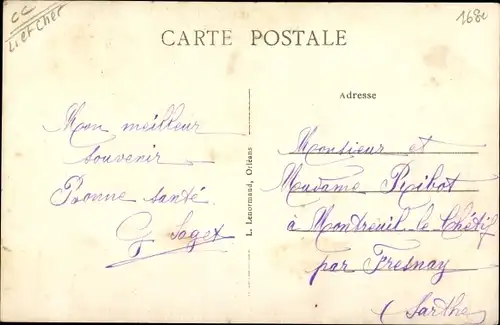 CC
Li et Cher
1680
CARTE POSTALE
Adresse
Mon meilleur
souvenir
Bonne santé
G Sages
L. Lenormand, Orléans
Monsieur et
Madame Ribot
à Montreuil le Chétif
par Fresnay
(Sarthe